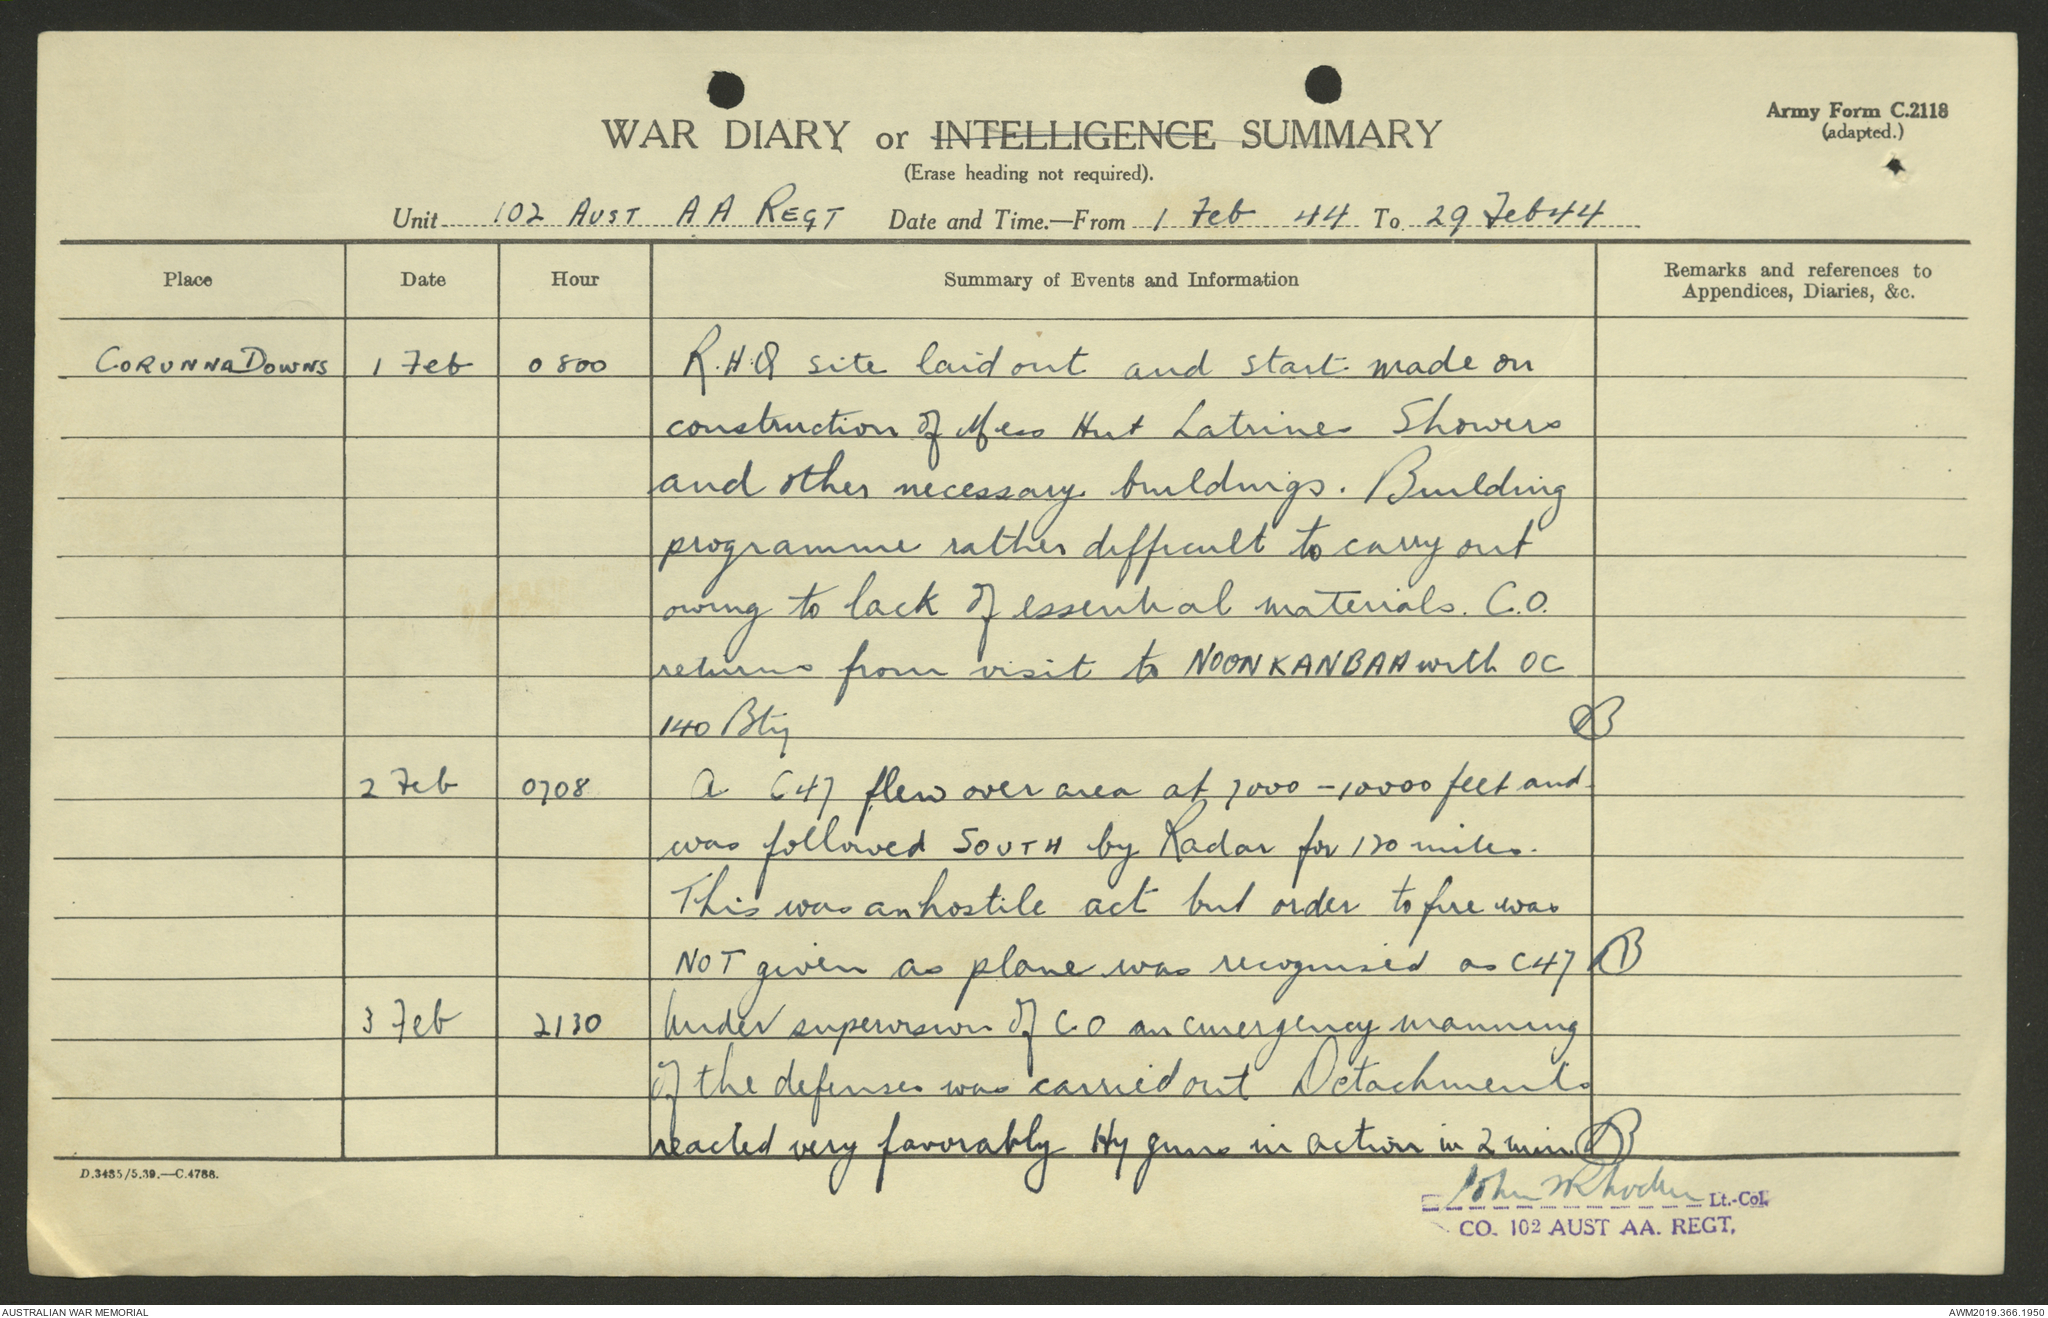 Army Form C.2118
(adapted.)
WAR DIARY or INTELLIGENCE SUMMARY
(Erase heading not required).
Unit 102 AUST AA REGT Date and Time.—From 1 Feb 44 To 29 Feb 44
Place Date Hour Summary of Events and Information Remarks and references to
Appendices, Diaries, &c.
CORUNNA DOWNS 1 Feb 0800 R.H.Q site laid out and start made on
construction of Mess Hut Latrines Showers
and other necessary buildings. Building
programme rather difficult to carry out
owing to lack of essential materials. C.O.
returns from visit to NOONKANBAH with OC
140 Bty
2 Feb 0708 A C47 flew over area at 7000 - 10000 feet and
was followed SOUTH by Radar for 120 miles.
This was an hostile act but order to fire was
NOT given as plane was recognised as C47
3 Feb 2130 Under supervision of C.O an emergency manning
of the defenses was carried out Detachments
reacted very favorably Hy guns in action in 2 min
D.3485/5.39.—C.4788.
Lt.-Col.
CO. 102 AUST AA. REGT.
AUSTRALIAN WAR MEMORIAL AWM2019.366.1950